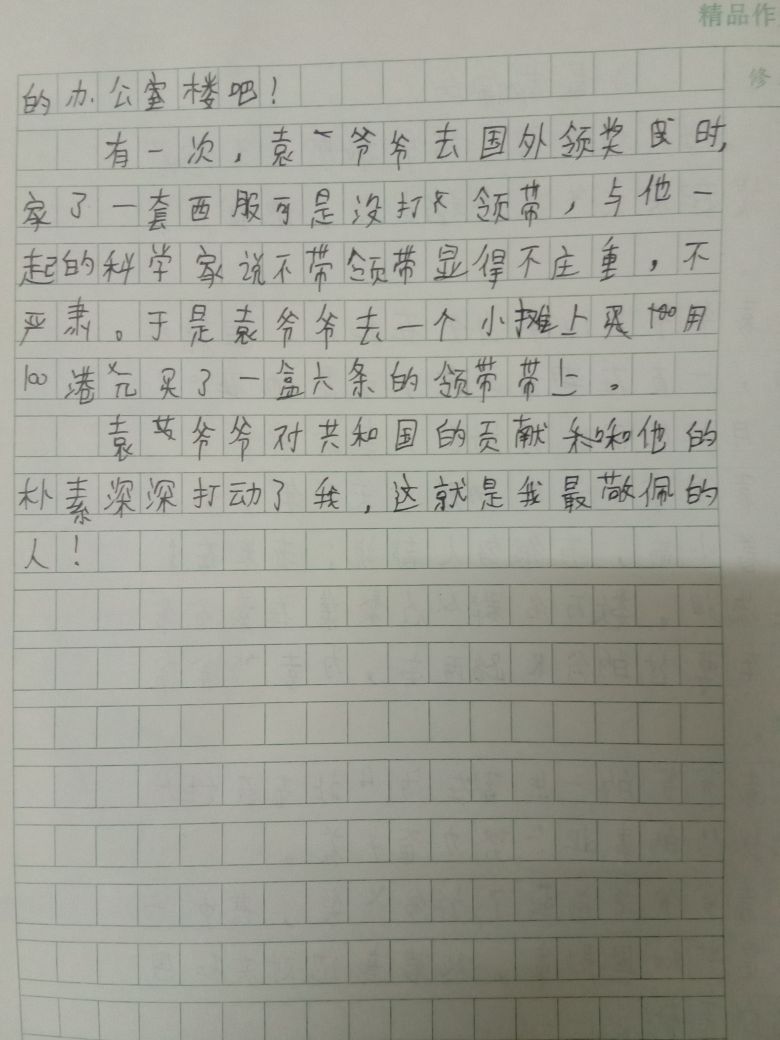 精品作
修
的办公室楼吧！
有一次，袁爷爷去国外领奖时，
家了一套西服可是没打领带，与他一
起的科学家说不带领带显得不庄重，不
严肃。于是袁爷爷去一个小摊上买100用
100港元买了一盒六条的领带带上。
袁爷爷对共和国的贡献和他的
朴素深深打动了我，这就是我最敬佩的
人！